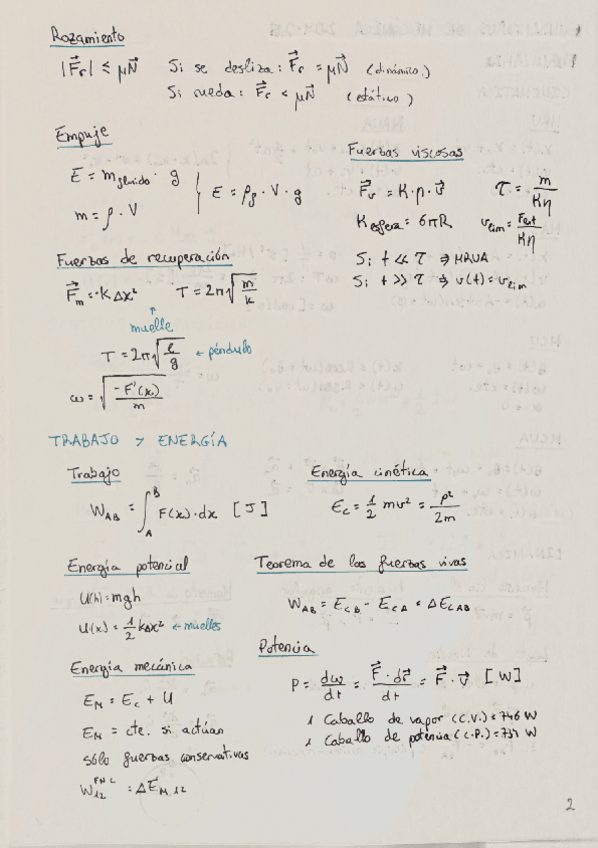 Rozamiento
|F⃗r| ≤ μN⃗ Si se desliza: F⃗r = μN⃗ (dinámico.)
Si rueda: F⃗r < μN⃗ (estático)
Empuje
E = m_fluido · g
m = ρ · V
E = ρ_f · V · g
Fuerzas viscosas
F⃗v = K·η·v⃗ τ = m/Kη
K_esfera = 6πR v_lim = F_ext/Kη
Si t << τ ⇒ MRUA
Si t >> τ ⇒ v(t) = v_lim
Fuerzas de recuperación
F⃗m = -kΔx² T = 2π√(m/k)
↑
muelle
T = 2π√(l/g) ← péndulo
ω = √(-F'(x₀)/m)
TRABAJO Y ENERGÍA
Trabajo
W_AB = ∫_A^B F(x)·dx [J]
Energía cinética
E_c = 1/2 mv² = p²/2m
Energía potencial
U(h) = mgh
U(x) = 1/2 kΔx² ← muelles
Teorema de las fuerzas vivas
W_AB = E_cB - E_cA = ΔE_cAB
Energía mecánica
E_M = E_c + U
E_M = cte. si actúan
sólo fuerzas conservativas
W_12^FNC = ΔE_M12
Potencia
P = dw/dt = F⃗·dr⃗/dt = F⃗·v⃗ [W]
1 Caballo de vapor (C.V.) = 746 W
1 Caballo de potencia (C.P.) = 735 W
2